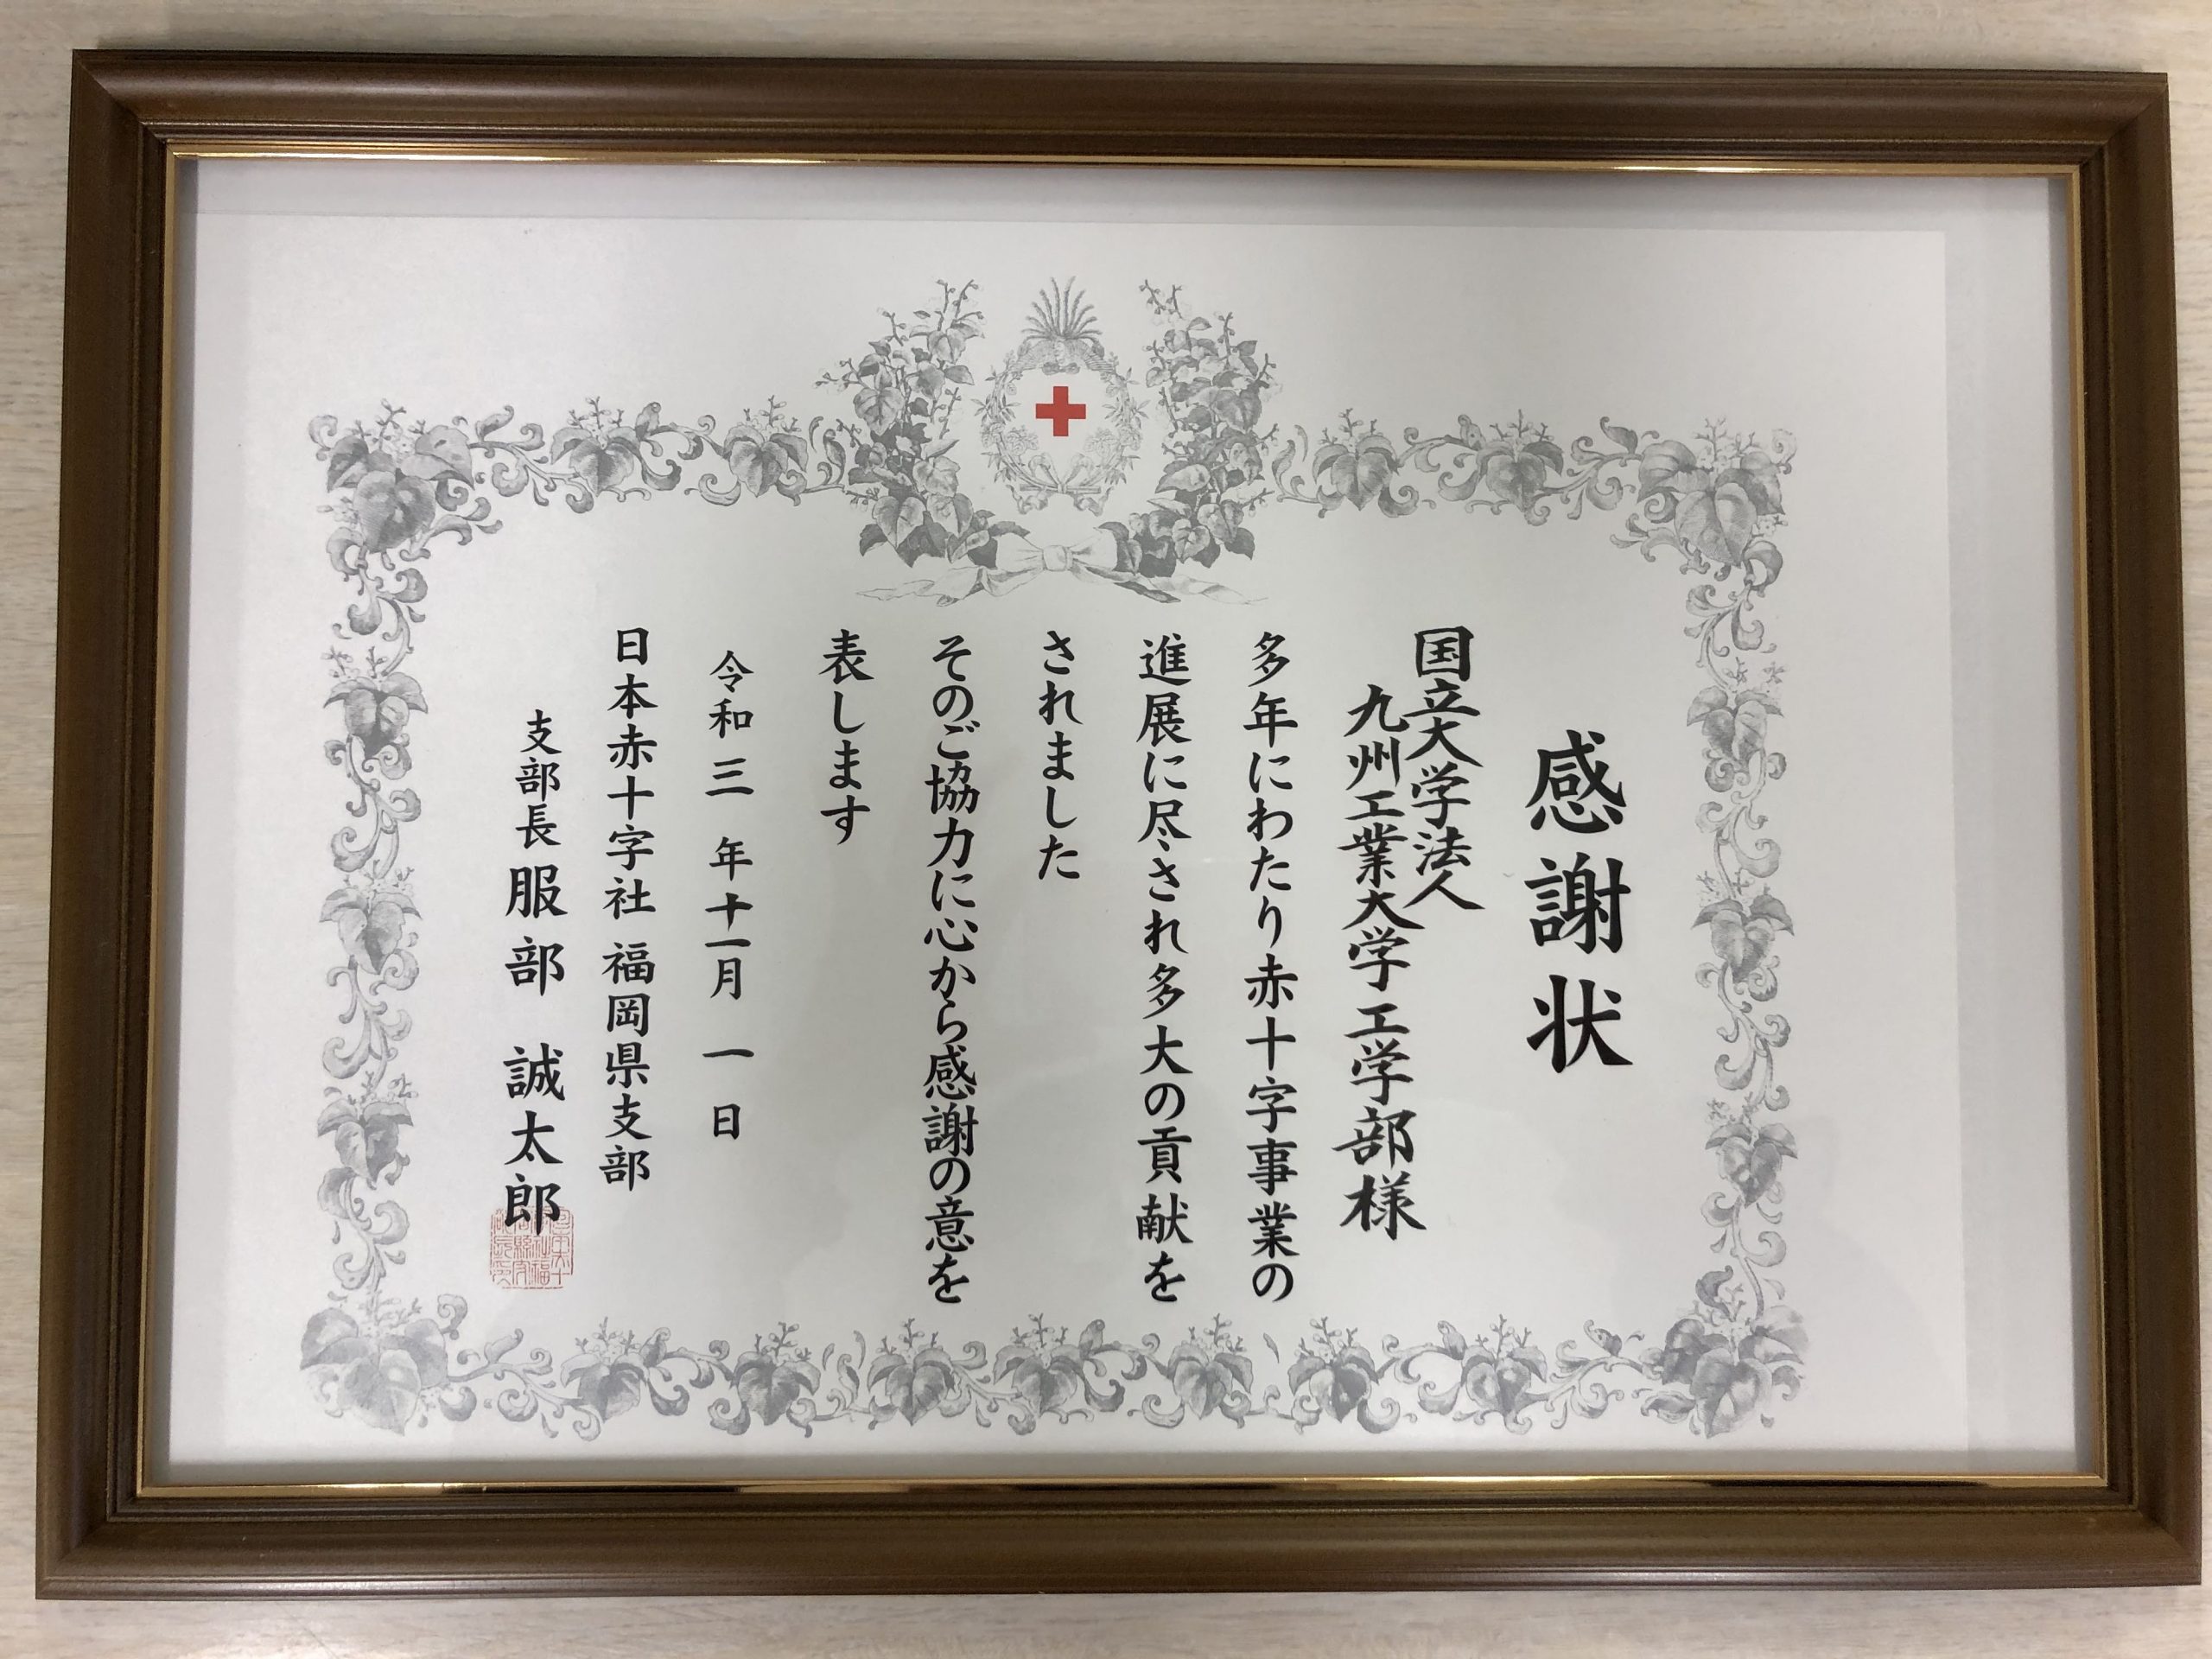 感謝状
国立大学法人
九州工業大学工学部様
多年にわたり赤十字事業の
進展に尽され多大の貢献を
されました
そのご協力に心から感謝の意を
表します
令和三年十一月一日
日本赤十字社 福岡県支部
支部長 服部 誠太郎